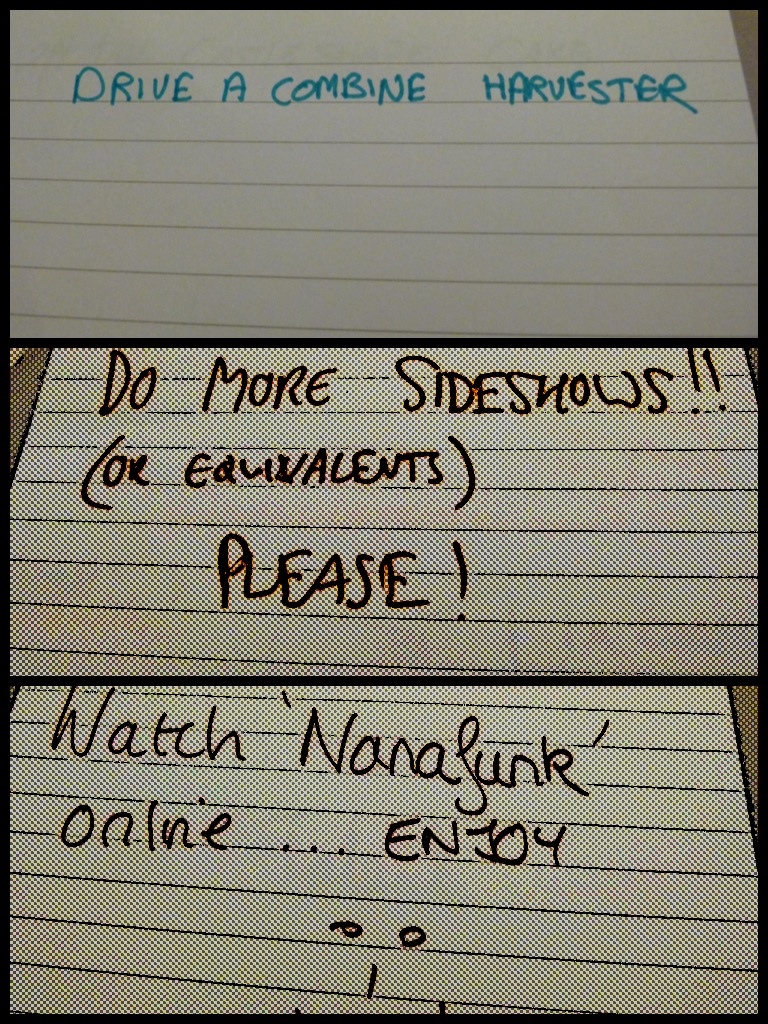 DRIVE A COMBINE HARVESTER
DO MORE SIDESHOWS!!
(OR EQUIVALENTS)
PLEASE!
Watch 'Nanafunk'
online ... ENJOY